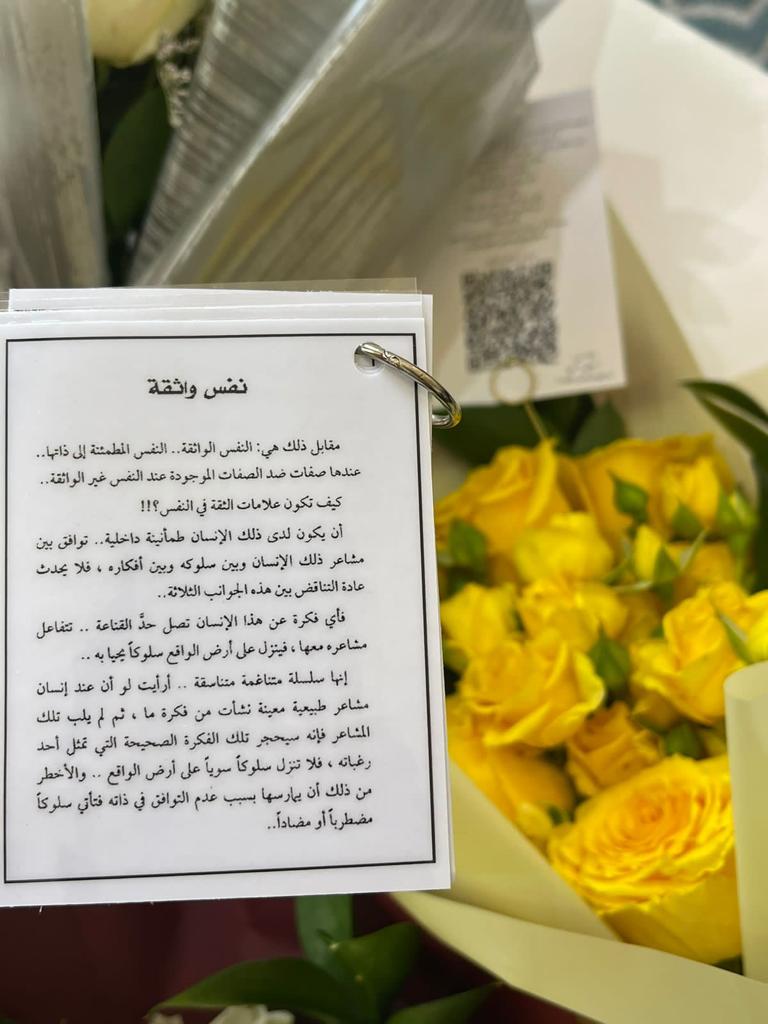 نفس واثقة
مقابل ذلك هي: النفس الواثقة.. النفس المطمئنة إلى ذاتها..
عندها صفات ضد الصفات الموجودة عند النفس غير الواثقة..
كيف تكون علامات الثقة في النفس؟!!
أن يكون لدى ذلك الإنسان طمأنينة داخلية.. توافق بين
مشاعر ذلك الإنسان وبين سلوكه وبين أفكاره ، فلا يحدث
عادة التناقض بين هذه الجوانب الثلاثة..
فأي فكرة عن هذا الإنسان تصل حدَّ القناعة .. تتفاعل
مشاعره معها ، فينزل على أرض الواقع سلوكاً يحيا به ..
إنها سلسلة متناغمة متناسقة .. أرأيت لو أن عند إنسان
مشاعر طبيعية معينة نشأت من فكرة ما ، ثم لم يلب تلك
المشاعر فإنه سيحجر تلك الفكرة الصحيحة التي تمثل أحد
رغباته ، فلا تنزل سلوكاً سوياً على أرض الواقع .. والأخطر
من ذلك أن يمارسها بسبب عدم التوافق في ذاته فتأتي سلوكاً
مضطرباً أو مضاداً..